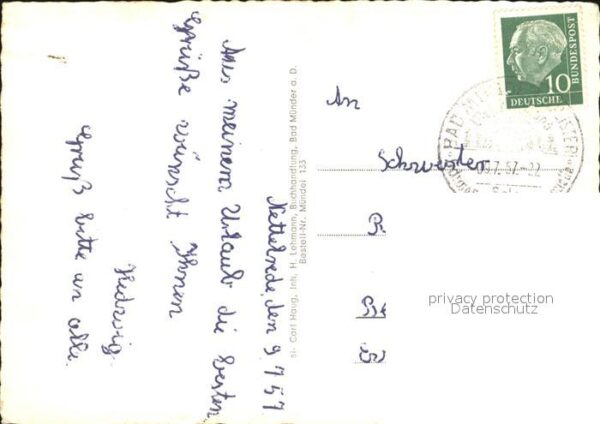 Nettelrede, den 9.7.57
Aus meinem Urlaub die besten
Grüße wünscht Ihnen
Hedwig.
Gruß bitte an alle.
An
Schwester
51- Carl Haug, Inh. H. Lohmann, Buchhandlung, Bad Münder a. D.
Bestell-Nr. Mündel 133
10
DEUTSCHE
BUNDESPOST
BAD
9.7.57-22
privacy protection
Datenschutz